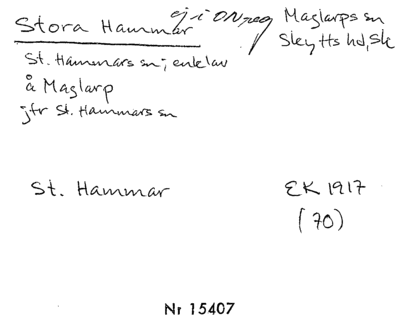 Stora Hammar ej i ON reg Maglarps sn
Skytts hd, Sk
St. Hammars sn; enklav
å Maglarp
jfr St. Hammars sn
St. Hammar EK 1917
(70)
Nr 15407